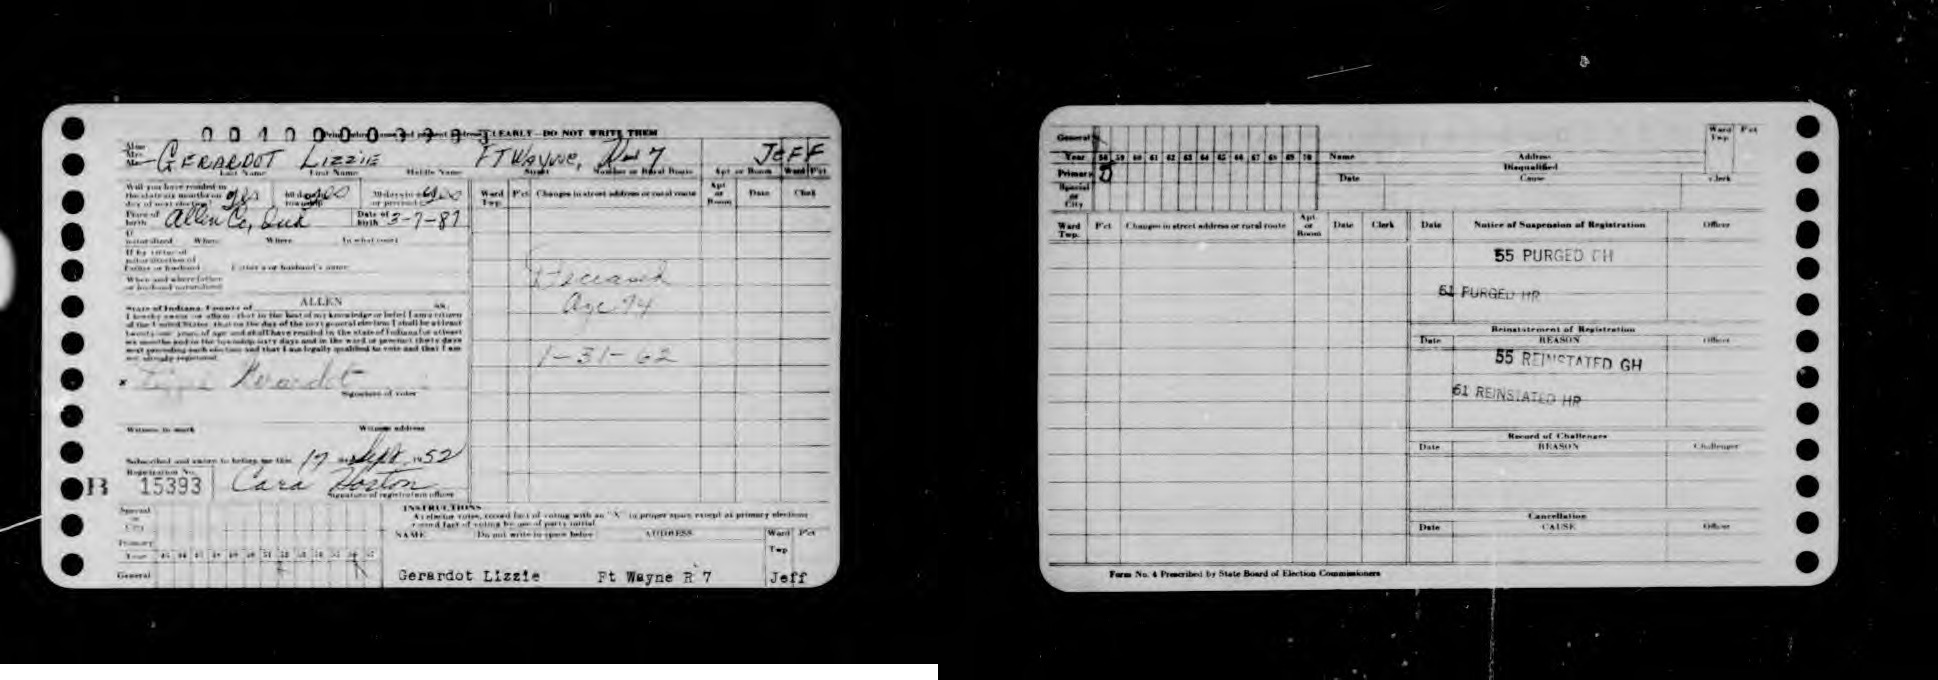 CLEARLY—DO NOT WRITE THEM
GERARDOT LIZZIE FT WAYNE, 7 JEFF
Last Name First Name Middle Name Street Number or Rural Route Apt or Room Ward P'ct
Will you have resided in
the state six months on yes 60 days in yes 30 days in yes
day of next election? township or precinct
Place of birth Allen Co, Ind Date of birth 3-7-87
If naturalized When Where In what court
If by virtue of
naturalization of
Father or husband Father's or husband's name
When and where father
or husband naturalized
State of Indiana, County of ALLEN ss:
I hereby swear or affirm that to the best of my knowledge or belief I am a citizen
of the United States, that on the day of the next general election I shall be at least
twenty-one years of age and shall have resided in the state of Indiana for at least
six months and in the township sixty days and in the ward or precinct thirty days
next preceding such election and that I am legally qualified to vote and that I am
not already registered.
x Lizzie Gerardot
Signature of voter
Witness to mark Witness address
Subscribed and sworn to before me this 17 Sept. 1952
Registration No.
B 15393 Cara Horton
Signature of registration officer
Ward Twp. P'ct Changes in street address or rural route Apt or Room Date Clerk
Deceased
Age 74
1-31-62
INSTRUCTIONS
NAME Do not write in space below ADDRESS Ward Twp P'ct
Gerardot Lizzie Ft Wayne R 7 Jeff
Special or City
Primary
Year
General
General
Year 58 59 60 61 62 63 64 65 66 67 68 69 70 Name Address Ward Twp. P'ct
Primary Disqualified
Special or City Date Cause Clerk
Ward Twp. P'ct Changes in street address or rural route Apt. or Room Date Clerk Date Notice of Suspension of Registration Officer
55 PURGED GH
61 PURGED HR
Reinstatement of Registration
Date REASON Officer
55 REINSTATED GH
61 REINSTATED HR
Record of Challenges
Date REASON Challenger
Cancellation
Date CAUSE Officer
Form No. 4 Prescribed by State Board of Election Commissioners